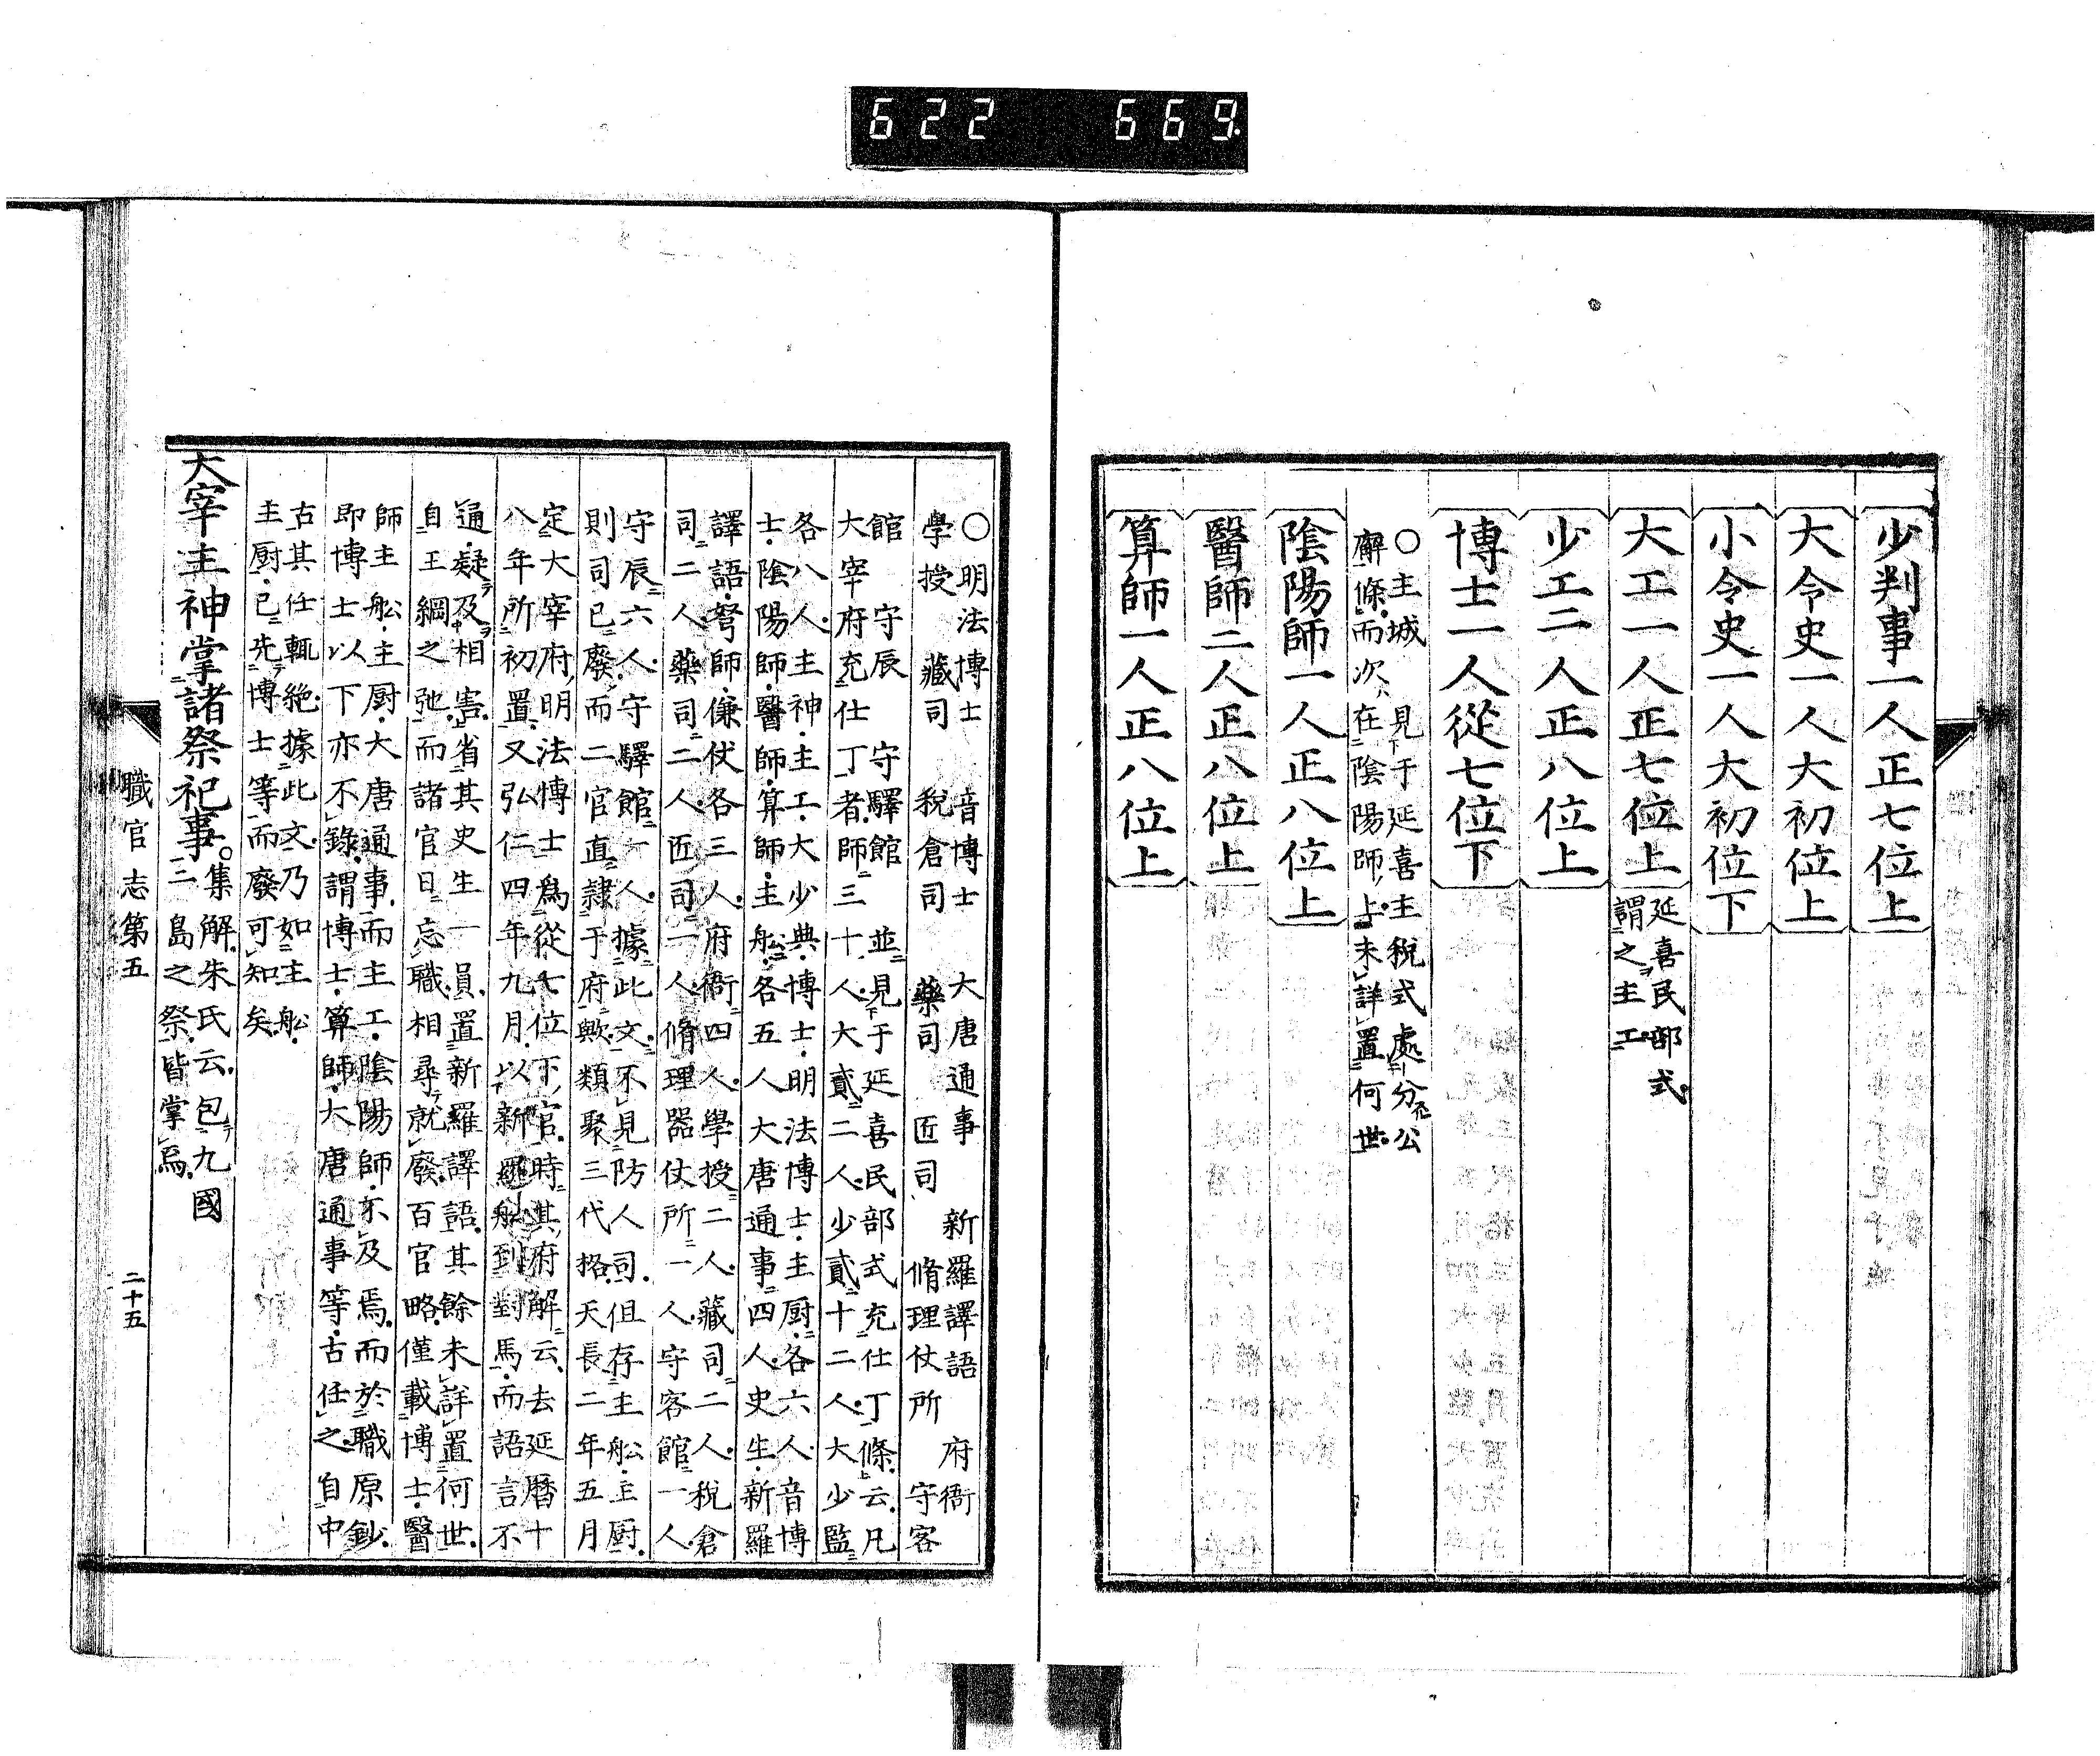 622 669
少判事一人正七位上
大令史一人大初位上
小令史一人大初位下
大工一人正七位上
延喜民部式
謂之主工
少工二人正八位上
博士一人從七位下
○主城 見于延喜主税式處分公
廨條而次在陰陽師上未詳置何世
陰陽師一人正八位上
醫師二人正八位上
算師一人正八位上
○明法博士 音博士 大唐通事 新羅譯語 府衙
學授 藏司 税倉司 藥司 匠司 脩理仗所 守客
館 守辰 守驛館 並見于延喜民部式充仕丁條云凡
大宰府充仕丁者師三十人大貳二人少貳十二人大少監
各八人主神主工大少典博士明法博士主厨各六人音博
士陰陽師醫師算師主舩各五人大唐通事四人史生新羅
譯語弩師傔仗各三人府衙四人學授二人藏司二人税倉
司二人藥司二人匠司一人脩理器仗所一人守客館一人
守辰六人守驛館一人據此文不見防人司但存主舩主厨
則司已廢而二官直隷于府歟類聚三代格天長二年五月
定大宰府明法博士爲從七位下官時其府解云去延暦十
八年所初置又弘仁四年九月以新羅舩到對馬而語言不
通疑及相害省其史生一員置新羅譯語其餘未詳置何世
自王綱之弛而諸官日忘職相尋就廢百官略僅載博士醫
師主舩主厨大唐通事而主工陰陽師不及焉而於職原鈔
即博士以下亦不錄謂博士算師大唐通事等古任之自中
古其任輒絶據此文乃如主舩
主厨已先博士等而廢可知矣
大宰主神掌諸祭祀事
○集解朱氏云包九國
二島之祭皆掌焉
職官志第五 二十五